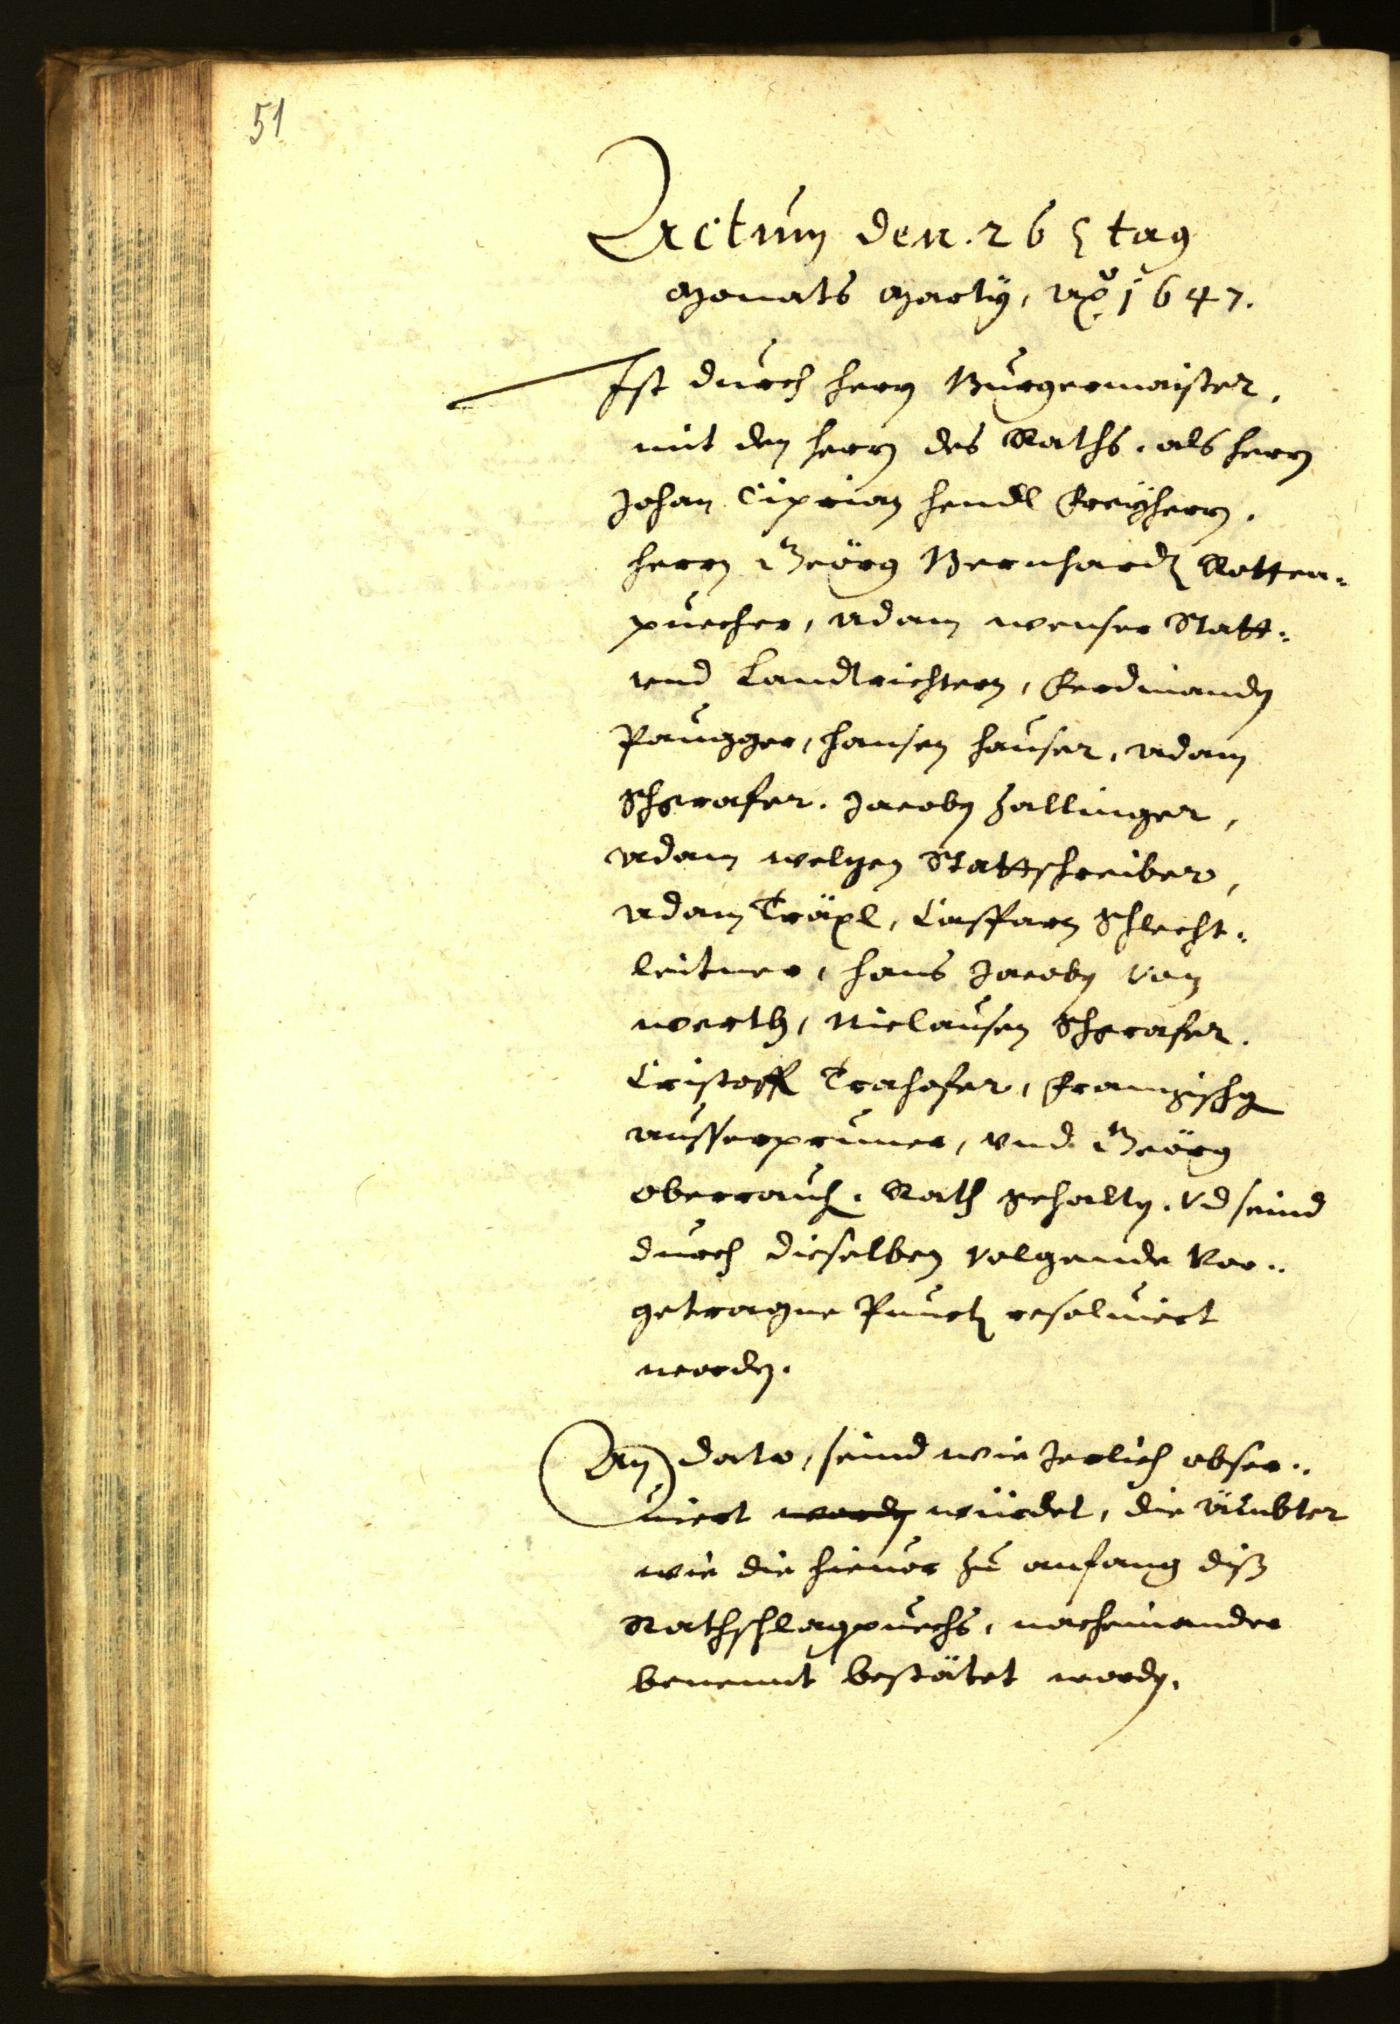 51
Actum den. 26 tag
Monats Marty, Ao 1647.
Ist durch herrn Burgermaister,
mit den herrn des Raths. als herrn
Johan Ciprian Hendl Freyherrn,
herrn Geörg Bernhardt Rotten-
puecher, Adam Wenser Statt-
vnd Landtrichtern, Ferdinanden
Paugger, Hansen Hauser, Adam
Schgrafer. Jacoben Zallinger,
Adam Welgen Stattschreiber,
Adam Träxl, Casparn Schlecht-
leitner, Hans Jacoben von
Werth, Niclausen Schgrafer.
Cristoff Trahofer, Franzischgen
Ausserprunner, vnd Geörg
Oberrauch. Rath gehalten. Vnd seind
durch dieselben volgende Vor-
getragne Punct resolviert
worden.
An dato, seind wie Jerlich obser-
viert worden würdet, die Ämbter
wie die hievor zu anfang diss
Rathschlagpuechs, nacheinander
benennt bestätet worden.